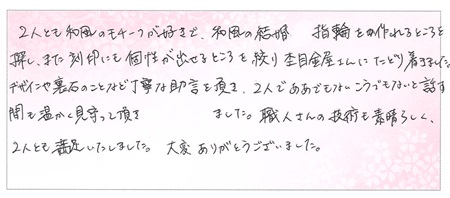 2人とも和風のモチーフが好きで、和風の結婚 指輪を作れるところを
探し、また刻印にも個性が出せるところを絞り杢目金屋さんにたどり着きました。
デザインや裏石のことなど丁寧な助言を頂き、2人でああでもないこうでもないと話す
間も温かく見守って頂き ました。職人さんの技術も素晴らしく、
2人とも満足いたしました。大変ありがとうございました。